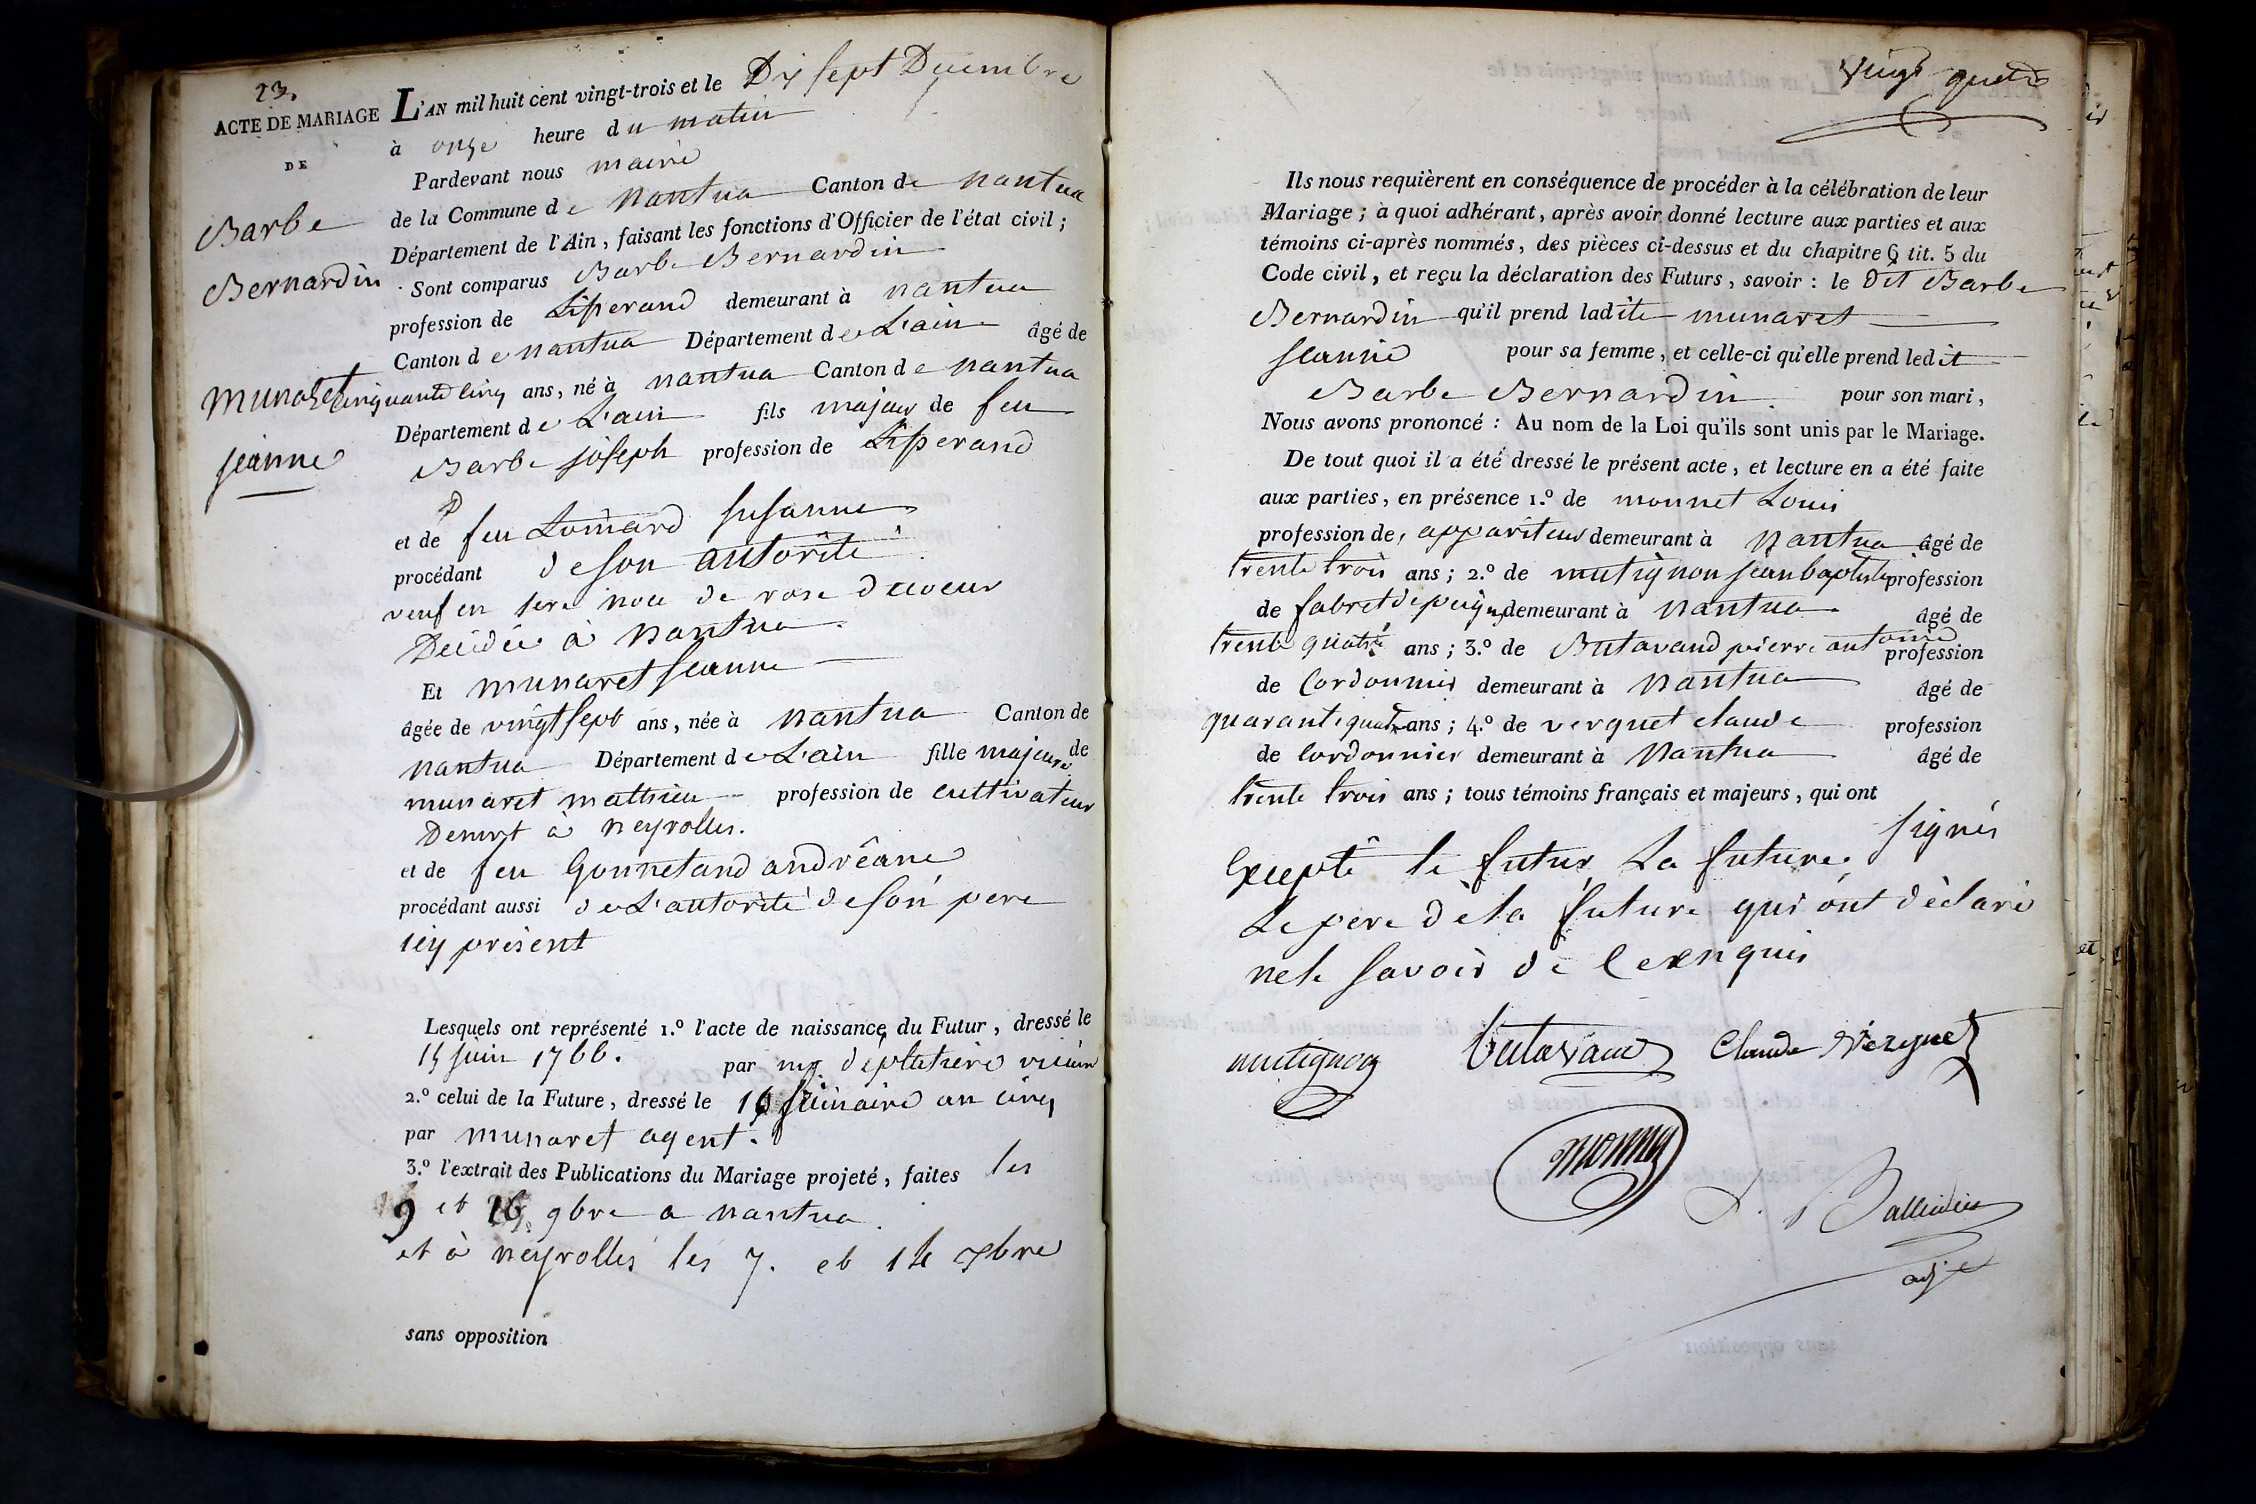 23.
ACTE DE MARIAGE
DE
Barbe
Bernardin
munaret
jeanne
L'AN mil huit cent vingt-trois et le Dix sept Decembre
à onze heure du matin
Pardevant nous maire
de la Commune de nantua Canton de nantua
Département de l'Ain, faisant les fonctions d'Officier de l'état civil ;
Sont comparus Barbe Bernardin
profession de tisserand demeurant à nantua
Canton de nantua Département de L'ain âgé de
cinquante cinq ans, né à nantua Canton de nantua
Département de L'ain fils majeur de feu
Barbe joseph profession de tisserand
et de feu Susanne
procédant de son autorité
veuf en 1ere noce de rose ducoeur
Décédée à nantua
Et munaret jeanne
âgée de vingt sept ans, née à nantua Canton de
nantua Département de L'ain fille majeure de
munaret mathieu profession de cultivateur
Demrt à neyrolles.
et de feu Gonnetand andréane
procédant aussi de L'autorité de son pere
icy présent
Lesquels ont représenté 1.º l'acte de naissance du Futur, dressé le
juin 1766. par mr. vicaire
2.º celui de la Future, dressé le an cinq
par munaret agent.
3.º l'extrait des Publications du Mariage projeté, faites les
9 et 16 9bre a nantua.
et à neyrolles les 7. et 14 Xbre
sans opposition
Vingt quatre
Ils nous requièrent en conséquence de procéder à la célébration de leur
Mariage ; à quoi adhérant, après avoir donné lecture aux parties et aux
témoins ci-après nommés, des pièces ci-dessus et du chapitre 6 tit. 5 du
Code civil, et reçu la déclaration des Futurs, savoir : le dit Barbe
Bernardin qu'il prend ladite munaret
jeanne pour sa femme, et celle-ci qu'elle prend ledit
Barbe Bernardin. pour son mari,
Nous avons prononcé : Au nom de la Loi qu'ils sont unis par le Mariage.
De tout quoi il a été dressé le présent acte, et lecture en a été faite
aux parties, en présence 1.º de monnet Louis
profession de, appariteur demeurant à Nantua âgé de
trente trois ans ; 2.º de mutignon jean baptiste profession
de fabrt de peignes demeurant à Nantua âgé de
trente quatre ans ; 3.º de Butavand pierre antoine profession
de Cordonnier demeurant à Nantua âgé de
quarante quatre ans ; 4.º de verguet claude profession
de Cordonnier demeurant à Nantua âgé de
trente trois ans ; tous témoins français et majeurs, qui ont
signés
Excepté le futur, La future,
Le pere de la future qui ont déclaré
ne le savoir de ce enquis
mutignon butavand Claude Verguet
monnet
adjt